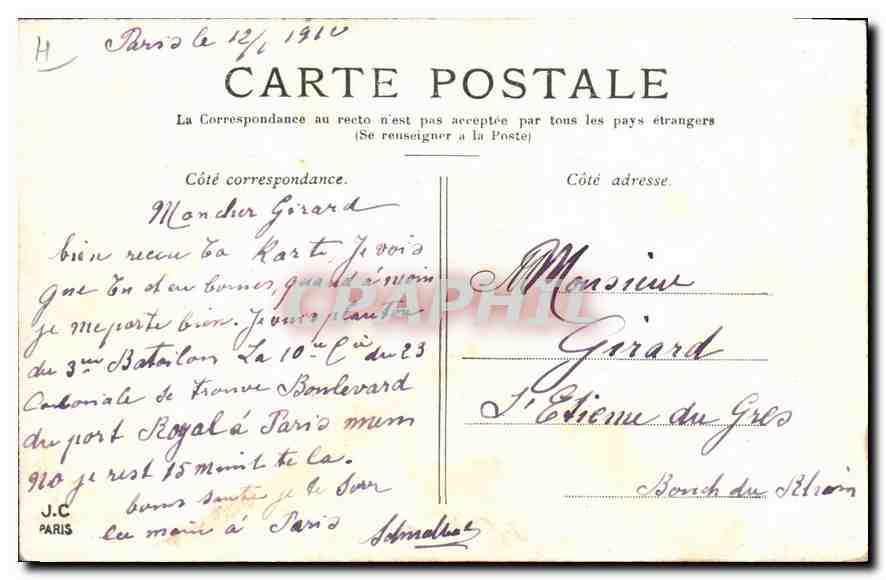 H
Paris le 12/1 1910
CARTE POSTALE
La Correspondance au recto n'est pas acceptée par tous les pays étrangers
(Se renseigner a la Poste)
Côté correspondance.
Côté adresse.
Moncher Girard
bien receu ta Karte, Je vois
que tu et en bonies, quand à moin
je me porte bien. Je vous planton
du 3me Batailon La 10me Cie du 23
Coloniale se trouve Boulevard
du port Royal à Paris mem
No je rest 15 minit te la.
bonne sante je te serr
la main à Paris
Monsieur
Girard
S'Etienne du Gres
Bouch du Rhoin
J.C
PARIS
CPAPHIL